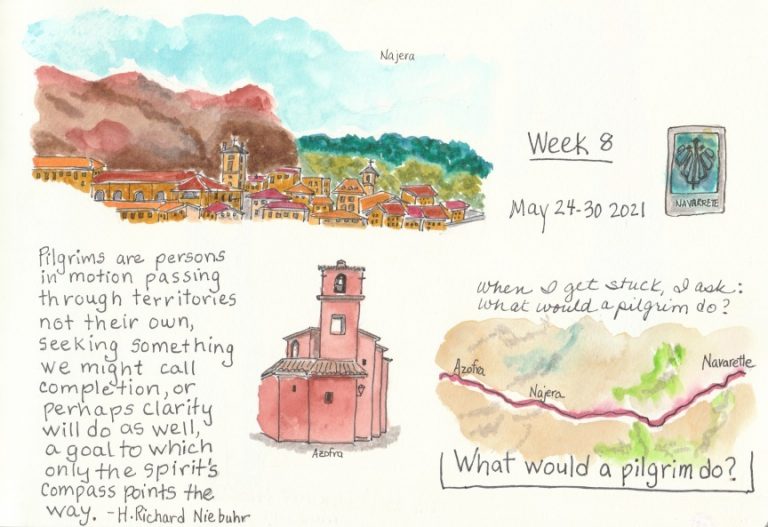 Najera
Week 8
May 24-30 2021
NAVARRETE
Pilgrims are persons
in motion passing
through territories
not their own,
seeking something
we might call
completion, or
perhaps clarity
will do as well,
a goal to which
only the spirit's
compass points the
way. -H. Richard Niebuhr
Azofra
When I get stuck, I ask:
What would a pilgrim do?
Azofra
Najera
Navarette
What would a pilgrim do?